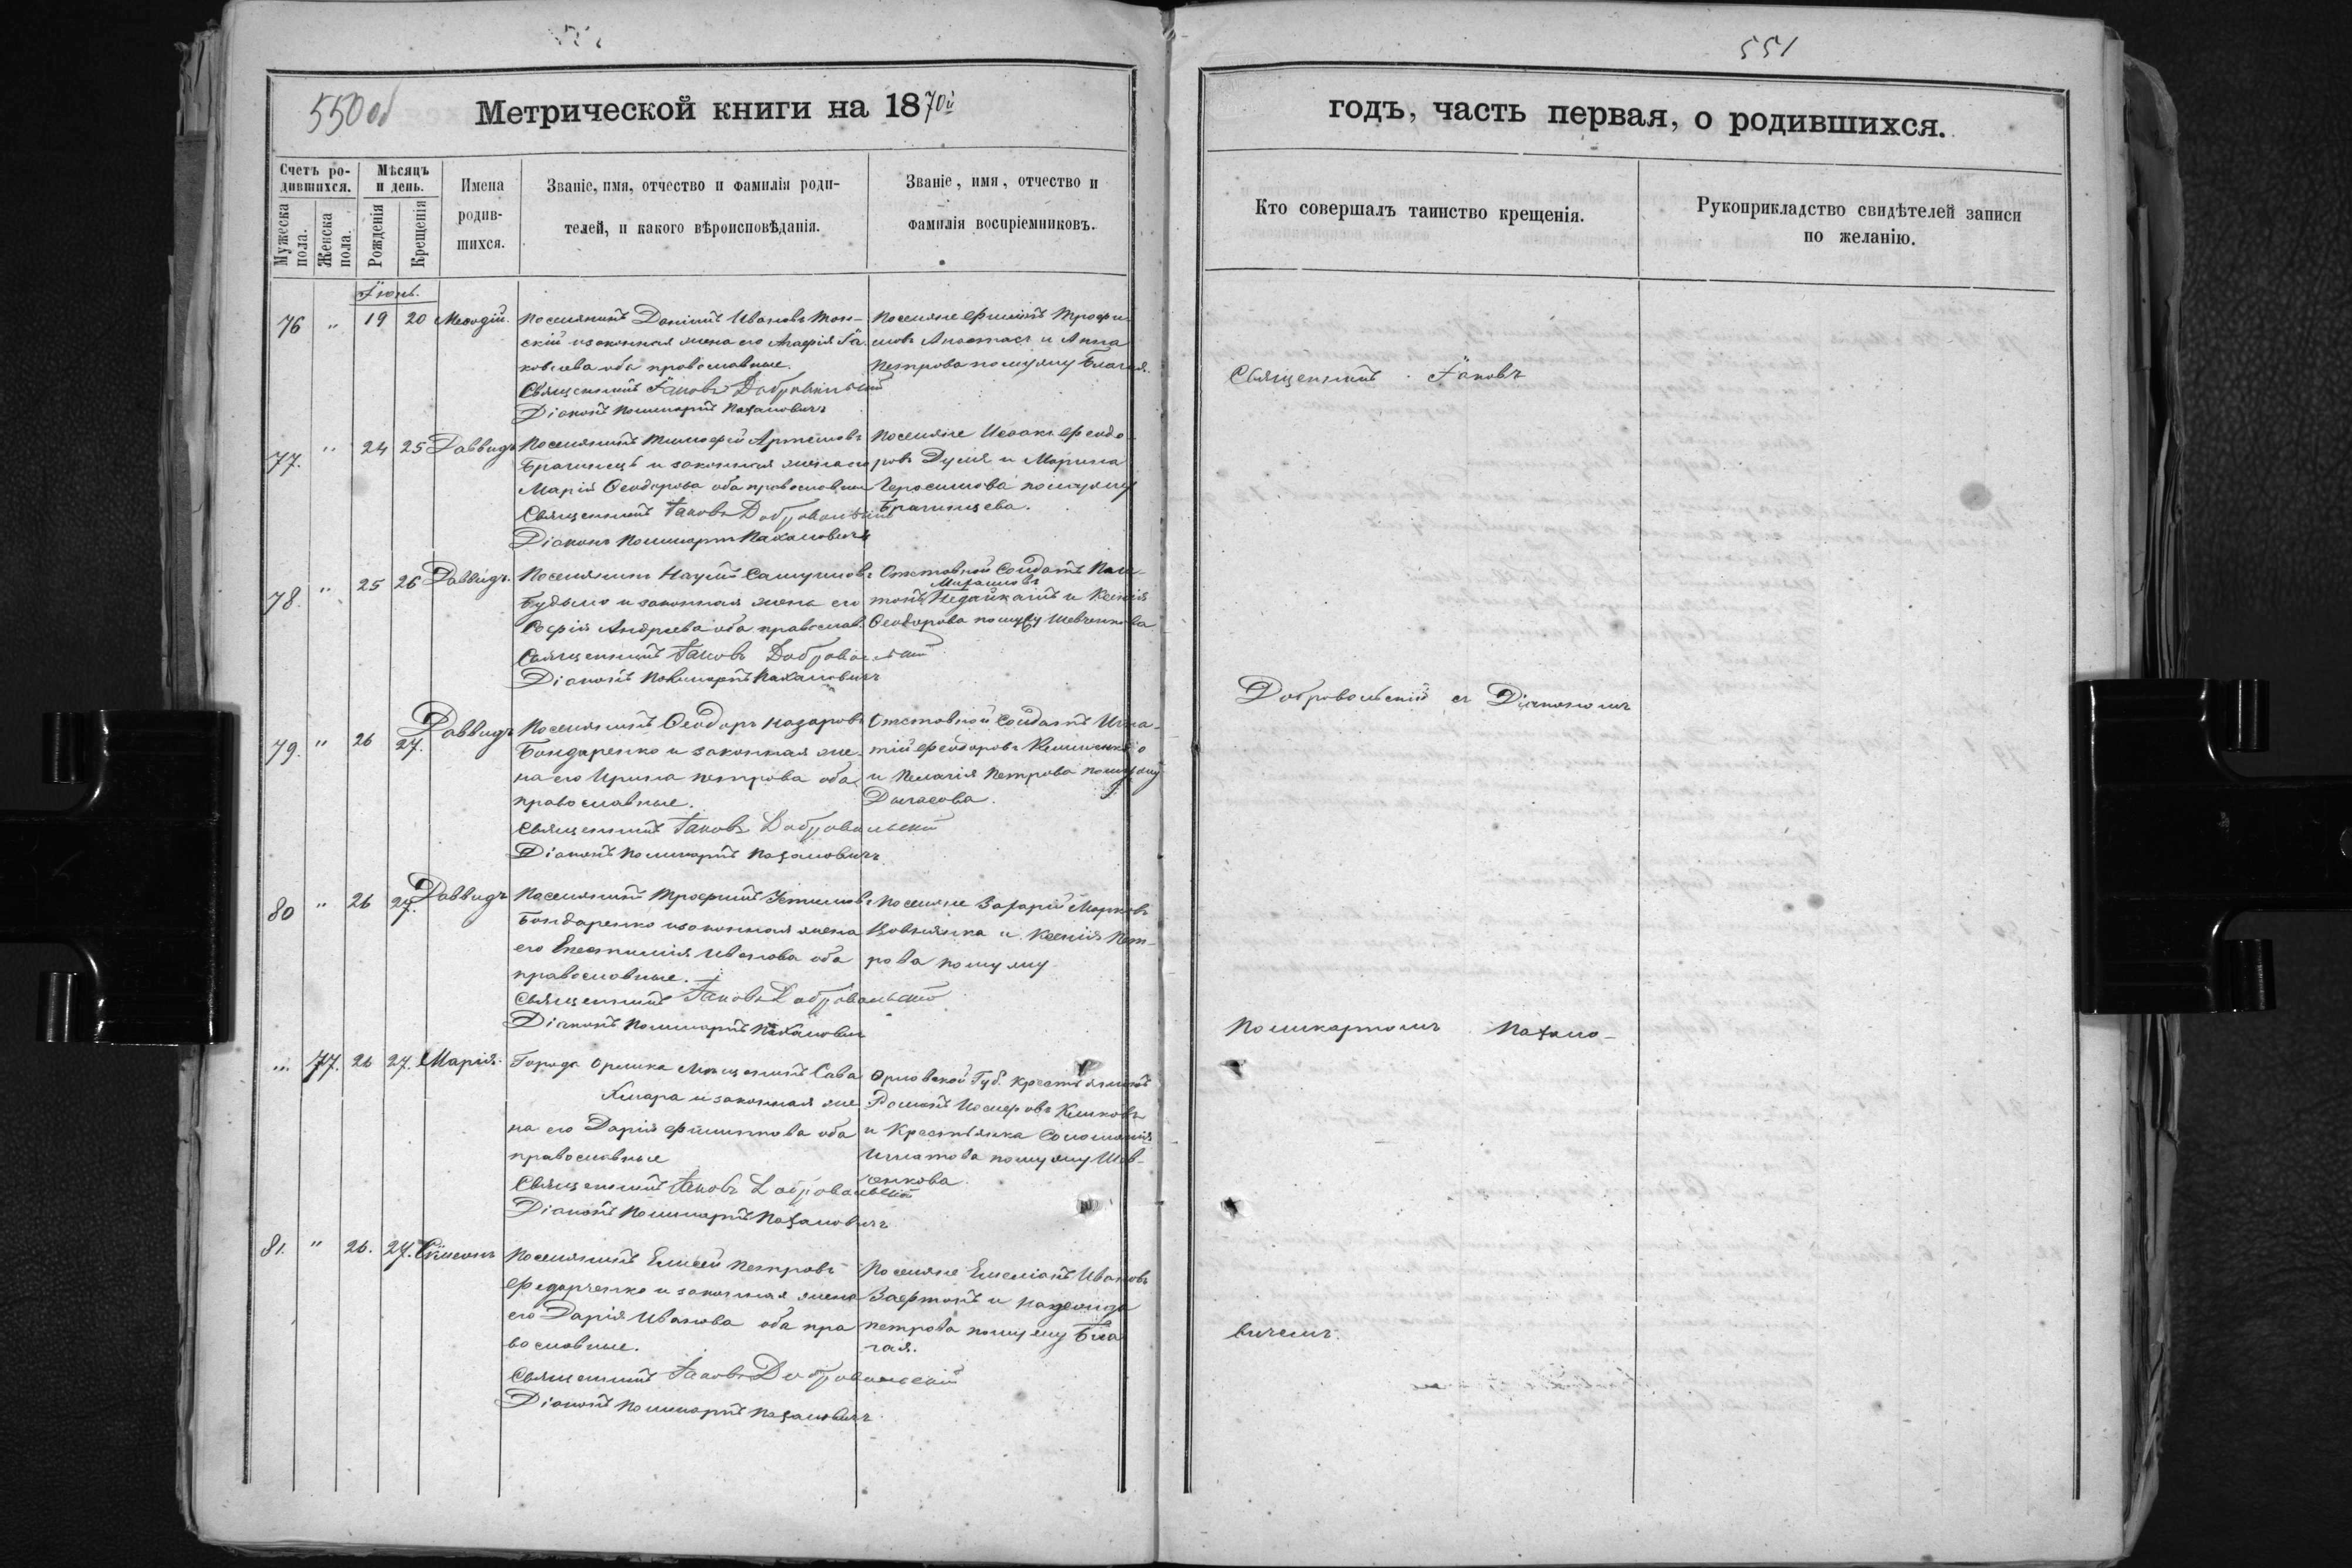 550 об
Метрической книги на 1870й
Счетъ ро-
дившихся.
Мѣсяцъ
и день.
Мужеска
пола.
Женска
пола.
Рожденія
Крещенія
Имена
родив-
шихся.
Званіе, имя, отчество и фамилія роди-
телей, и какого вѣроисповѣданія.
Званіе, имя, отчество и
фамилія воспріемниковъ.
Іюнь.
76 " 19 20 Меѳодій.
Поселянинъ Даніилъ Ивановъ
скій и законная жена его Агафія Іа-
ковлева оба православные.
Священникъ Іаковъ Добровольскій
Діаконъ Поликарпъ Пахаловичъ
Поселяне Филипъ Трофи-
мовъ и Анна
Петрова по мужу
77. " 24 25 Даввидъ
Поселянинъ Тимофей Артемовъ
Брагинецъ и законная жена его
Марія Ѳеодорова оба православные
Священникъ Іаковъ Добровольскій
Діаконъ Поликарпъ Пахаловичъ
Поселяне Исаакъ Феодо-
ровъ Дуля и Марина
Герасимова по мужу
Брагинцева.
78. " 25 26 Даввидъ.
Поселянинъ Наумъ Самуиловъ
и законная жена его
Софія Андреева оба православ.
Священникъ Іаковъ Добровольскій
Діаконъ Поликарпъ Пахаловичъ
Отставной Солдатъ Пла-
Михаиловъ
тонъ и Ксенія
Ѳеодорова по мужу Шевченкова
79. " 26 27. Даввидъ
Поселянинъ Ѳеодоръ Назаровъ
Бондаренко и законная же-
на его Ирина Петрова оба
православные.
Священникъ Іаковъ Добровольскій
Діаконъ Поликарпъ Пахаловичъ
Отставной Солдатъ Игна-
тій Феодоровъ Клименко
и Пелагія Петрова по мужу
80 " 26 27. Даввидъ
Поселянинъ Трофимъ
Бондаренко и законная жена
его Ивановна оба
православные.
Священникъ Іаковъ Добровольскій
Діаконъ Поликарпъ Пахаловичъ
Поселяне Захарій Марковъ
Вовнянка и Ксенія Пет-
рова по мужу
" 77. 26 27. Марія.
Города Орлика Мѣщанинъ Сава
Хмара и законная же
на его Дарія Филиппова оба
православные
Священникъ Іаковъ Добровольскій
Діаконъ Поликарпъ Пахаловичъ
Орловской Губ. крестьянинъ
Романъ Іосифовъ
и Крестьянка Соломонія
Игнатова по мужу Шев-
ченкова.
81. " 26. 27. Симеонъ
Поселянинъ Елисей Петровъ
Федорченко и законная жена
его Дарія Иванова оба пра
вославные.
Священникъ Іаковъ Добровольскій
Діаконъ Поликарпъ Пахаловичъ
Поселяне Емеліанъ Ивановъ
и Надежда
Петрова по мужу
551
годъ, часть первая, о родившихся.
Кто совершалъ таинство крещенія.
Рукоприкладство свидѣтелей записи
по желанію.
Священникъ Іаковъ
Добровольскій съ Діакономъ
Поликарпомъ Пахало-
вичемъ.